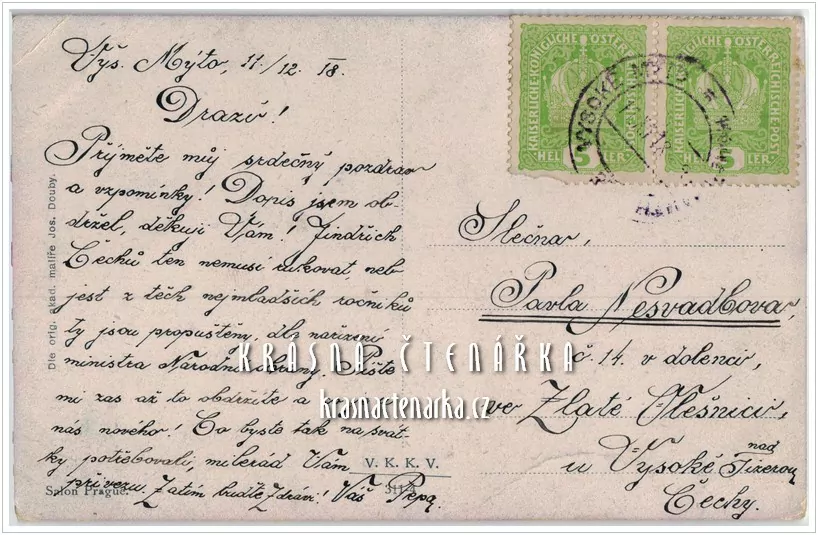 Vys. Mýto, 11/12. 18.
Drazí!
Přijměte můj srdečný pozdrav
a vzpomínky! Dopis jsem ob-
držel, děkuji Vám! Jindřich
Čechů ten nemusí rukovat, neb
jest z těch nejmladších ročníků
ty jsou propuštěny, dle nařízení
ministra Národní obrany. Pište
mi zas až to obdržíte a
nás nového! Co byste tak na svát-
ky potřebovali, milerád Vám
přivezu. Zatím buďte Zdrávi! Váš Pepa.
Dle orig. akad. malíře Jos. Douby.
Salon Prague.
V. K. K. V.
KAISERLICHE KÖNIGLICHE ÖSTERREICHISCHE POST
HELLER 5
KAISERLICHE KÖNIGLICHE ÖSTERREICHISCHE POST
5 HELLER
VYSOKÉ MÝTO
Slečna,
Pavla Nesvadbova,
č. 14 v dolenci,
ve Zlaté Olešnici,
u Vysoké nad Jizerou
Čechy.
KRÁSNÁ ČTENÁŘKA
krasnactenarka.cz